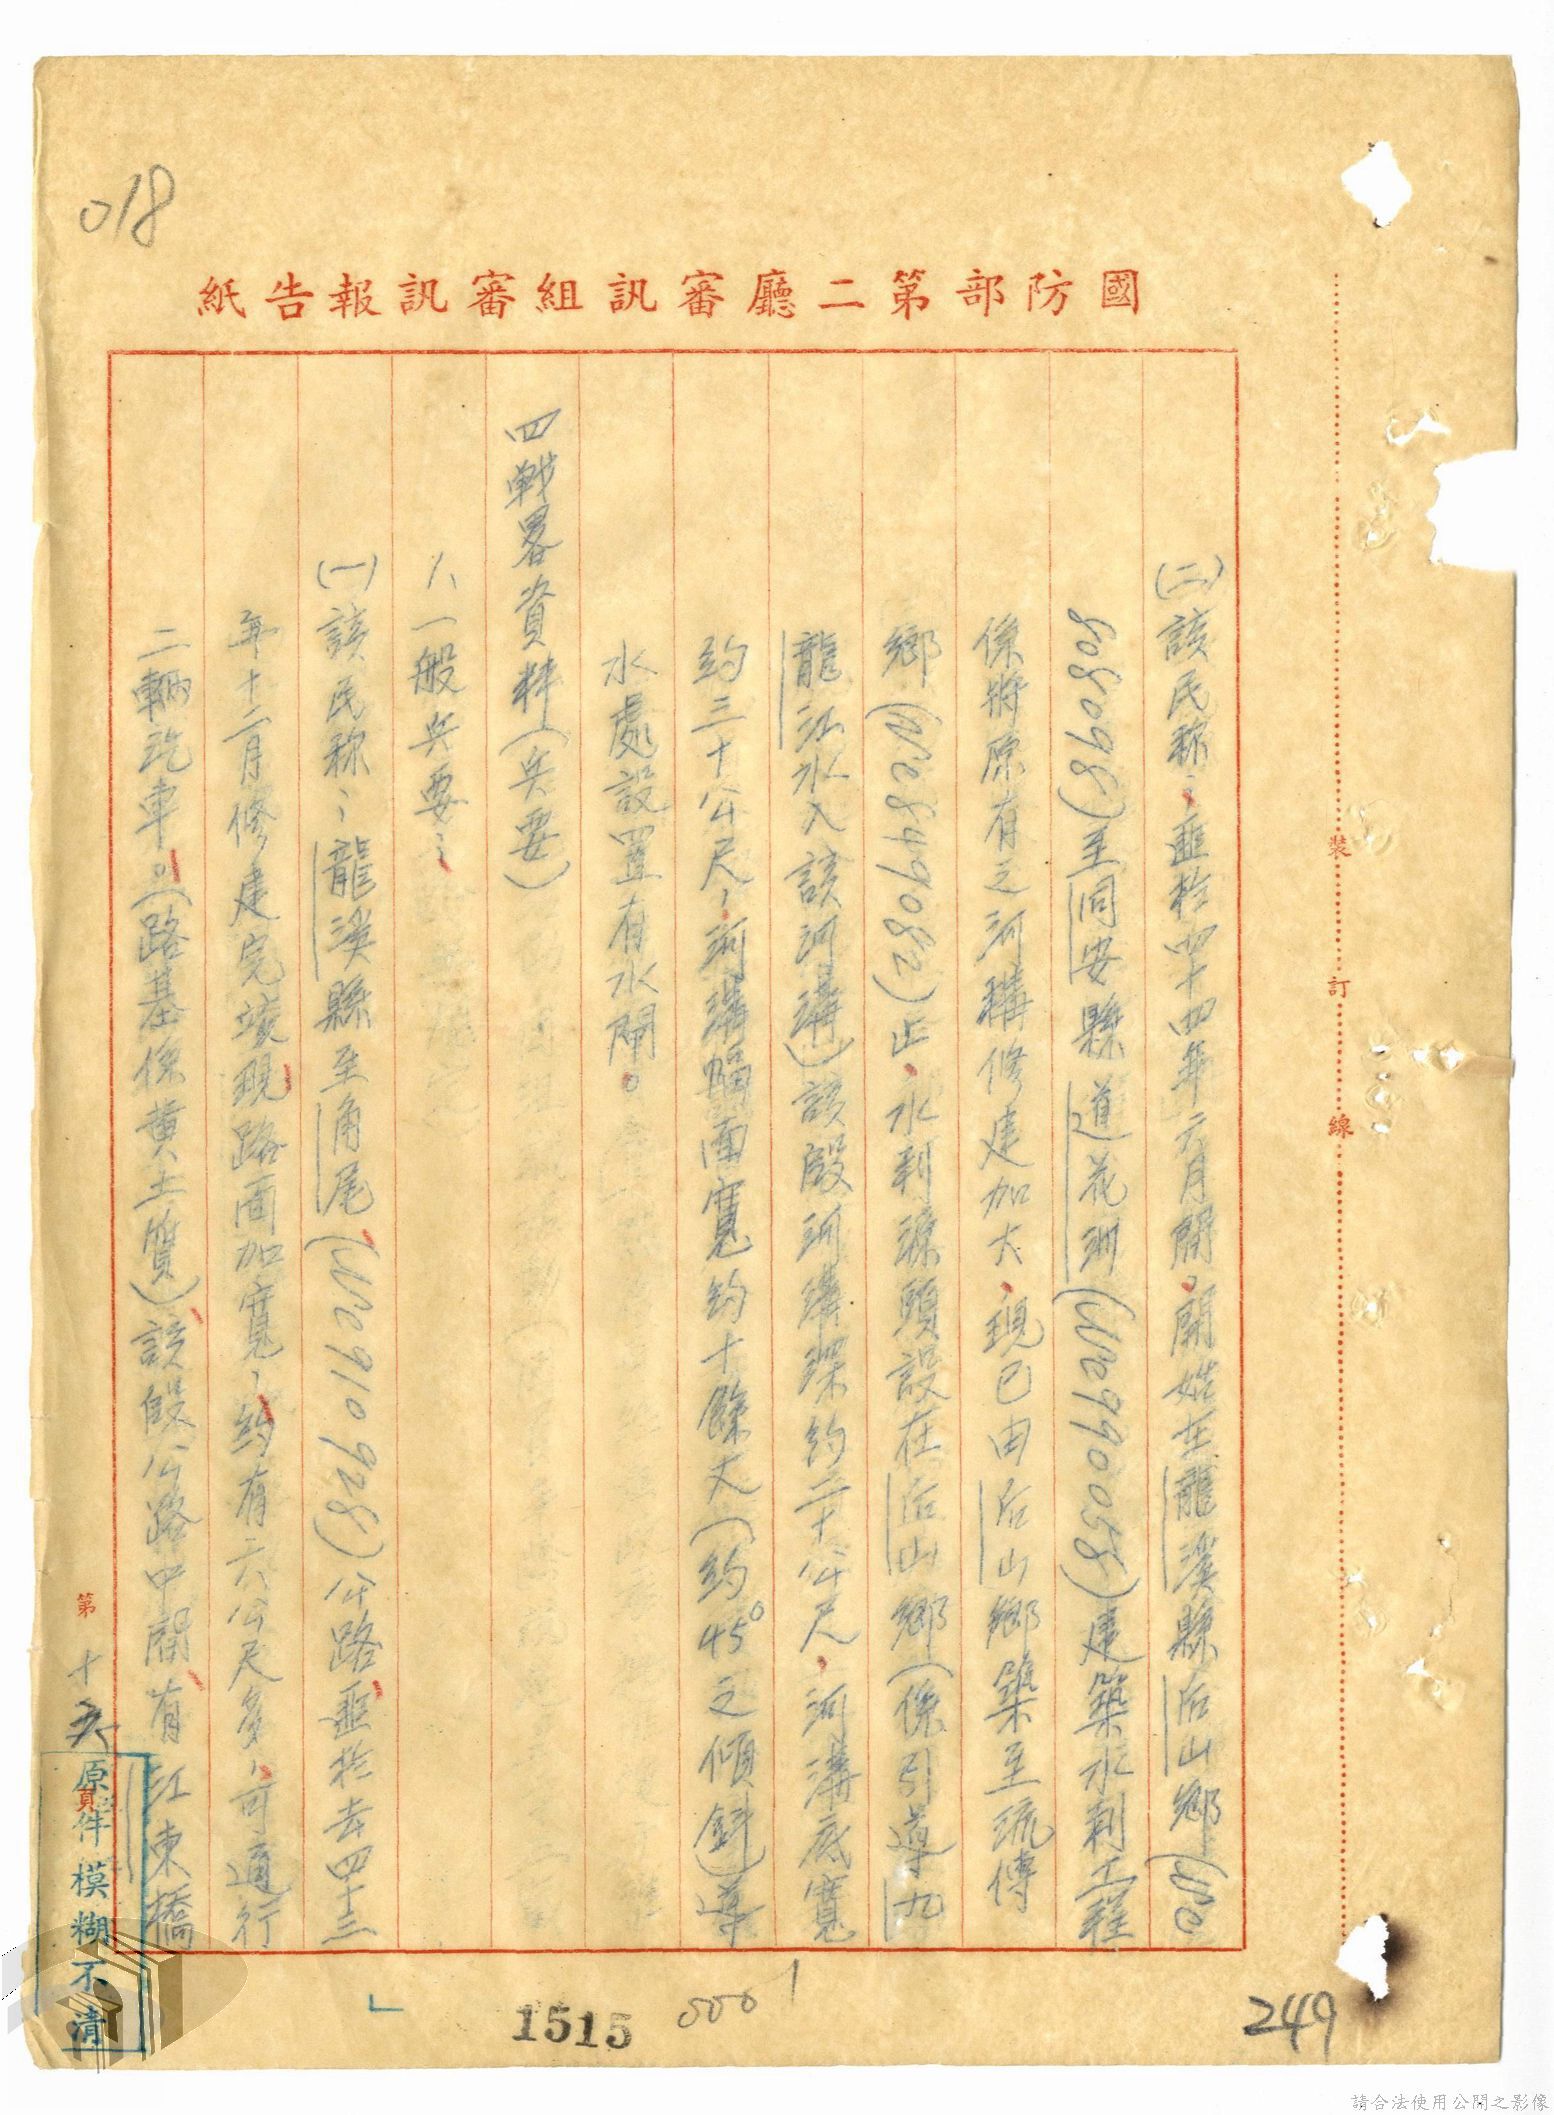 018
國防部第二廳審訊組審訊報告紙
(二)該民稱：匪於四十四年元月間，開始在龍溪縣后山鄉(We
808098)至同安縣道花洲(We990058)建築水利工程
係將原有之河溝修建加大，現已由后山鄉築至流傳
鄉(We849082)止，水利源頭設在后山鄉(係引導九
龍江水入該河溝)該段河溝深約二十公尺，河溝底寬
約三十公尺，河溝幅面寬約十餘丈(約45°之傾斜)導
水處設置有水閘。
四戰畧資料(兵要)
1、一般兵要：
(一)該民稱：龍溪縣至角尾(We910928)公路匪於去四十三
年十二月修建完竣現路面加寬，約有六公尺多，可通行
二輛汽車。(路基係黃土質)該段公路中間有江東橋
裝
訂
線
第十六頁
原件模糊不清
1515
249
請合法使用公開之影像